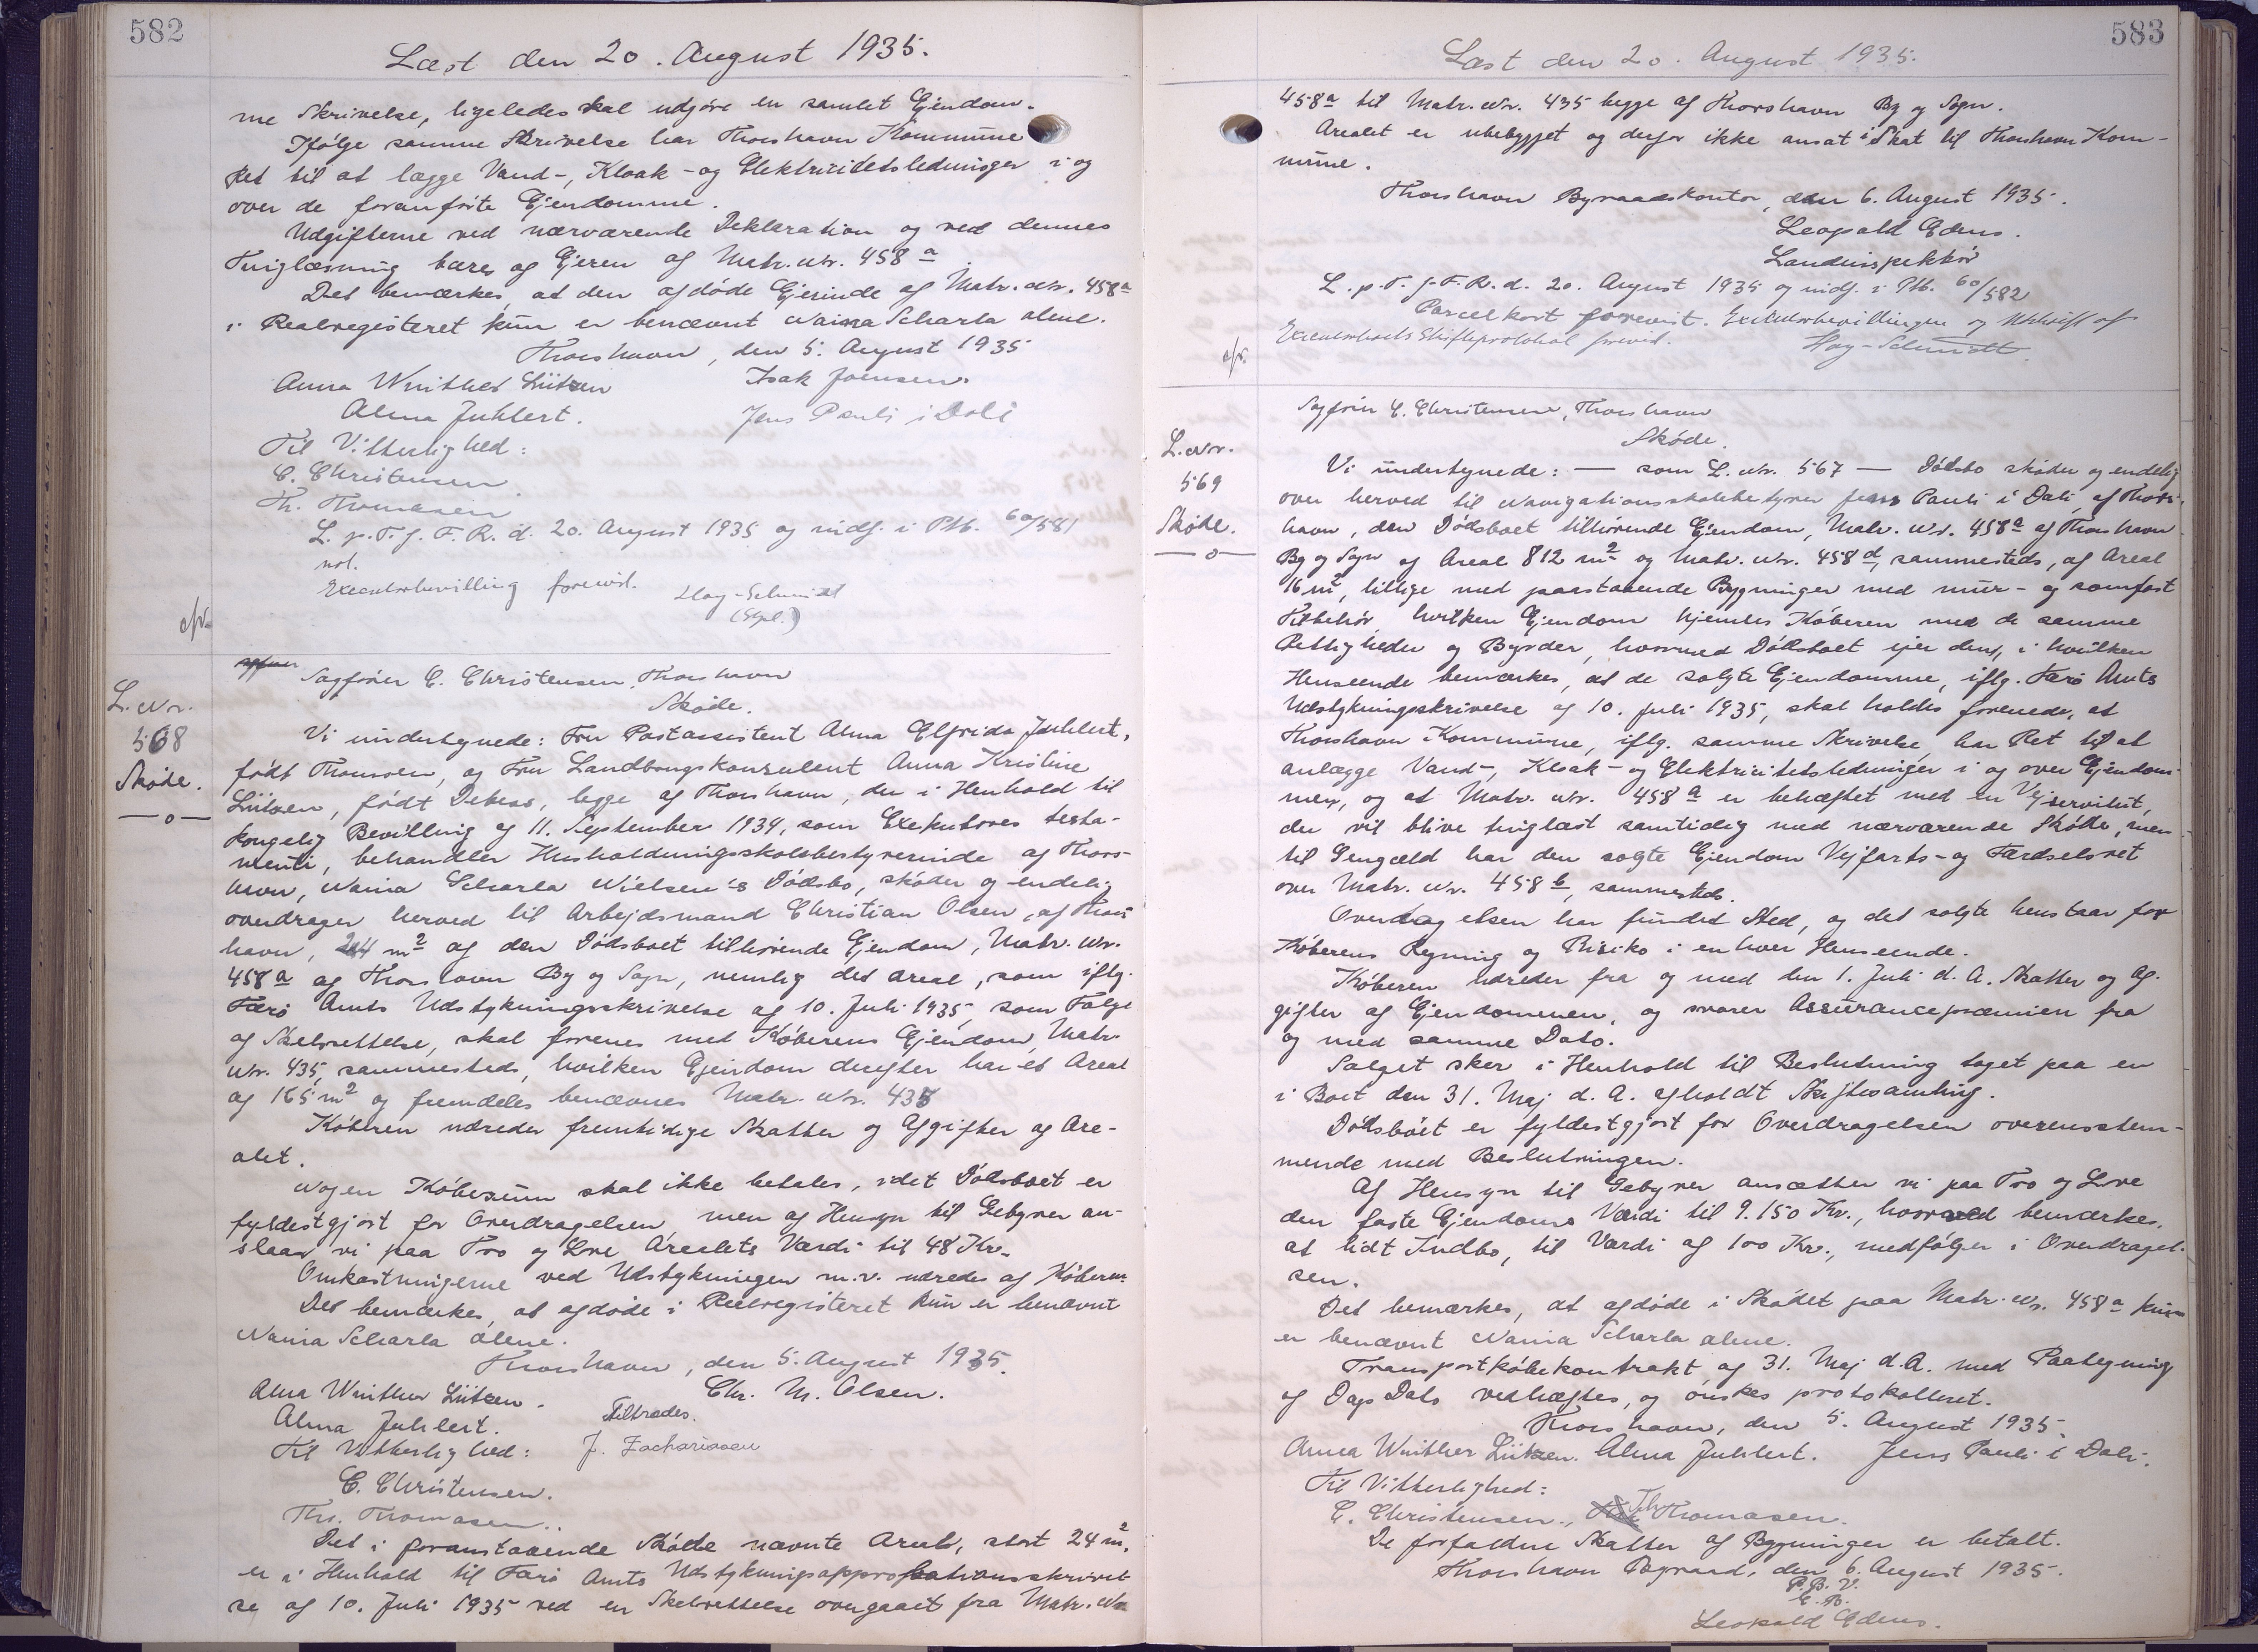 582
Læst den 20. August 1935.
me Skrivelse, ligeledes skal udgøre en samlet Ejendom.
Ifølge samme Skrivelse har Thorshavn Kommune
Ret til at lægge Vand-, Kloak- og Elektricitetsledninger i og
over de foranførte Ejendomme.
Udgifterne ved nærværende Deklaration og ved dennes
Tinglæsning bæres af Ejeren af Matr. Nr. 458 a
Det bemærkes, at den afdøde Ejerinde af Matr. Nr. 458a
i Realregisteret kun er benævnt Naina Scharla alene.
Thorshavn, den 5. August 1935
Anna Winther Lützen Isak Joensen.
Alma Juhlert. Jens Pauli i Dali
Til Vitterlighed:
C. Christensen.
Th. Thomasen
L. p. T. f. F. R. d. 20. August 1935 og indf. i Ptb. 60/581
not.
Executorbevilling forevist. Hay-Schmidt
efv.
Sagfører C. Christensen, Thorshavn
L. Nr.
568
Skøde.
—o—
Skøde.
Vi undertegnede: Fru Postassistent Alma Elfrida Juhlert,
født Thomsen, og Fru Landbrugskonsulent Anna Kristine
Lützen, født Debess, begge af Thorshavn, der i Henhold til
kongelig Bevilling af 11. September 1934, som Exekutores testa-
menti, behandler Husholdningsskolebestyrerinde af Thors-
havn, Naina Scharla Nielsen's Dødsbo, skøder og endelig
overdrager herved til Arbejdsmand Christian Olsen, af Thors
havn, 24 m2 af den Dødsboet tilhørende Ejendom, Matr. Nr.
458a af Thorshavn By og Sogn, nemlig det Areal, som iflg.
Færø Amts Udstykningsskrivelse af 10. Juli 1935, som Følge
af Skelrettelse, skal forenes med Køberens Ejendom, Matr.
Nr. 435, sammesteds, hvilken Ejendom derefter har et Areal
af 165 m2 og fremdeles benævnes Matr. Nr. 435
Køberen udreder fremtidige Skatter og Afgifter af Are-
alet.
Nogen Købesum skal ikke betales, idet Dødsboet er
fyldestgjort for Overdragelsen, men af Hensyn til Gebyrer an-
slaar vi paa Tro og Love Arealets Værdi til 48 Kr.
Omkostningerne ved Udstykningen m.v. udredes af Køberen.
Det bemærkes, at afdøde i Realregisteret kun er benævnt
Naina Scharla alene.
Thorshavn, den 5. August 1935.
Anna Winther Lützen. Chr. M. Olsen.
Alma Juhlert. Tiltrædes.
Til Vitterlighed: J. Zachariasen
C. Christensen.
Th. Thomasen.
Det i foranstaaende Skøde nævnte Areal, stort 24 m2,
er i Henhold til Færø Amts Udstykningsapprobationsskrivel
se af 10. Juli 1935 ved en Skelrettelse overgaaet fra Matr. Nr.
583
Læst den 20. August 1935.
458a til Matr. Nr. 435 begge af Thorshavn By og Sogn.
Arealet er ubebygget og derfor ikke ansat i Skat til Thorshavn Kom-
mune.
Thorshavn Byraadskontor, den 6. August 1935.
Leopold Edens.
Landinspektør
L. p. T. f. F. R. d. 20. August 1935 og indf. i Ptb. 60/582
Parcelkort forevist. Exekutorbevillingen og Udskrift af
Executorboets Skifteprotokol forevist. Hay-Schmidt.
efv.
Sagfører C. Christensen, Thorshavn
L. Nr.
569
Skøde.
—o—
Skøde.
Vi undertegnede: — som L. Nr. 567 — Dødsbo skøder og endelig
over herved til Navigationsskolebestyrer Jens Pauli i Dali, af Thors-
havn, den Dødsboet tilhørende Ejendom, Matr. Nr. 458a af Thorshavn
By og Sogn af Areal 812 m2 og Matr. Nr. 458d, sammesteds, af Areal
16 m2, tillige med paastaaende Bygninger med mur- og sømfast
Tilbehør, hvilken Ejendom hjemles Køberen med de samme
Rettigheder og Byrder, hvormed Dødsboet ejer den, i hvilken
Henseende bemærkes, at de solgte Ejendomme, iflg. Færø Amts
Udstykningsskrivelse af 10. Juli 1935, skal holdes forenede, at
Thorshavn Kommune, iflg. samme Skrivelse, har Ret til at
anlægge Vand-, Kloak- og Elektricitetsledninger i og over Ejendom-
men, og at Matr. Nr. 458a er behæftet med en Vejservitut,
der vil blive tinglæst samtidig med nærværende Skøde, men
til Gengæld har den solgte Ejendom Vejfarts- og Færdselsret
over Matr. Nr. 458 b, sammesteds.
Overdragelsen har fundet Sted, og det solgte henstaar for
Køberens Regning og Risiko i enhver Henseende.
Køberen udreder fra og med den 1. Juli d. A. Skatter og Af-
gifter af Ejendommen, og svarer Assurancepræmien fra
og med samme Dato.
Salget sker i Henhold til Beslutning taget paa en
i Boet den 31. Maj d. A. afholdt Skiftesamling.
Dødsboet er fyldestgjort for Overdragelsen overensstem-
mende med Beslutningen.
Af Hensyn til Gebyrer ansætter vi paa Tro og Love
den faste Ejendoms Værdi til 9.150 Kr., hvorved bemærkes,
at lidt Indbo, til Værdi af 100 Kr., medfølger i Overdragel-
sen.
Det bemærkes, at afdøde i Skødet paa Matr. Nr. 458a kun
er benævnt Naina Scharla alene.
Transportkøbekontrakt af 31. Maj d. A. med Paategning
af Dags Dato vedhæftes, og ønskes protokolleret.
Thorshavn, den 5. August 1935.
Anna Winther Lützen. Alma Juhlert. Jens Pauli i Dali.
Til Vitterlighed:
C. Christensen., Th. Thomasen.
De forfaldne Skatter af Bygninger er betalt.
Thorshavn Byraad, den 6. August 1935.
P. B. V.
E. B.
Leopold Edens.